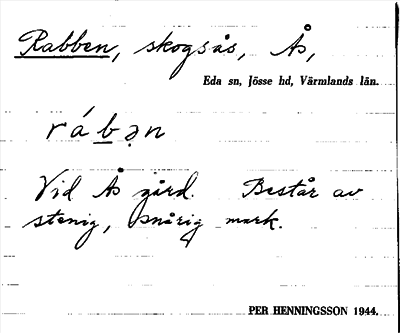 Rabben, skogsås, Ås,
Eda sn, Jösse hd, Värmlands län.
rábən
Vid Ås gård. Består av
stenig, snårig mark.
PER HENNINGSSON 1944.